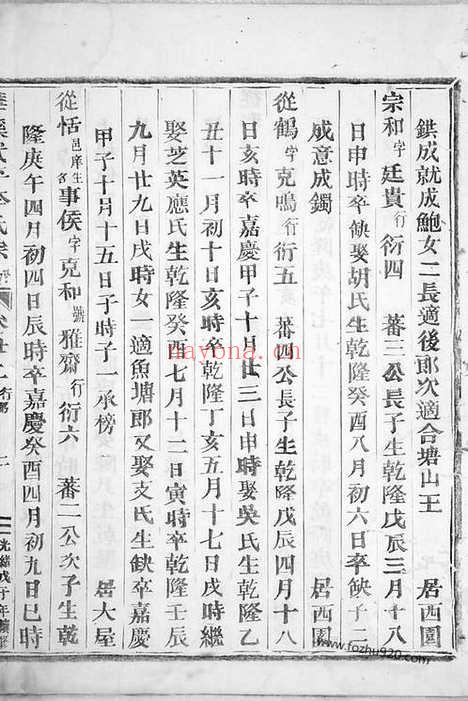 鉷成就成鮑女二長適後郎次適合塘山王 居西園
宗和字廷貴行衍四 蕃三公長子生乾隆戊辰三月十八
日申時卒缺娶胡氏生乾隆癸酉八月初六日卒缺子二
成意成鐲 居西園
從鶴字克鳴行衍五 蕃四公長子生乾隆戊辰四月十八
日亥時卒嘉慶甲子十月廿三日申時娶吳氏生乾隆乙
丑十一月初十日亥時卒乾隆丁亥五月十七日戌時繼
娶芝英應氏生乾隆癸酉七月十二日寅時卒乾隆壬辰
九月廿九日戌時女一適魚塘郎又娶支氏生缺卒嘉慶
甲子十月十五日子時子一承榜 居大屋
從恬邑庠生名事侯字克和號雅齋行衍六 蕃二公次子生乾
隆庚午四月初四日辰時卒嘉慶癸酉四月初九日巳時
nayona.cn
www.fozhu920.com